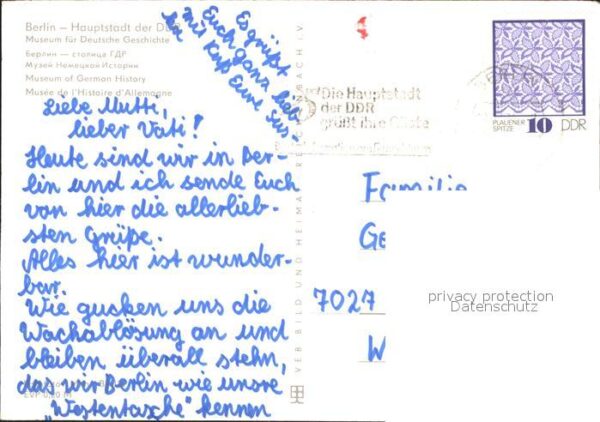 Berlin – Hauptstadt der DDR
Museum für Deutsche Geschichte
Берлин — столица ГДР
Музей Немецкой Истории
Museum of German History
Musée de l'Histoire d'Allemagne
Liebe Mutti,
lieber Vati!
Heute sind wir in Ber-
lin und ich sende Euch
von hier die allerlieb-
sten Grüße.
Alles hier ist wunder-
bar.
Wie gucken uns die
Wachablösung an und
bleiben überall stehn,
das wir Berlin wie unsre
„Westentasche" kennen
EVP 0,20 M
Es grüßt
Euch ganz lieb
mit Kuß Eure
VEB BILD UND HEIMAT REICHENBACH i. V.
Die Hauptstadt
der DDR
grüßt ihre Gäste
PLAUENER
SPITZE 10 DDR
Familie
Ge
7027
W
privacy protection
Datenschutz